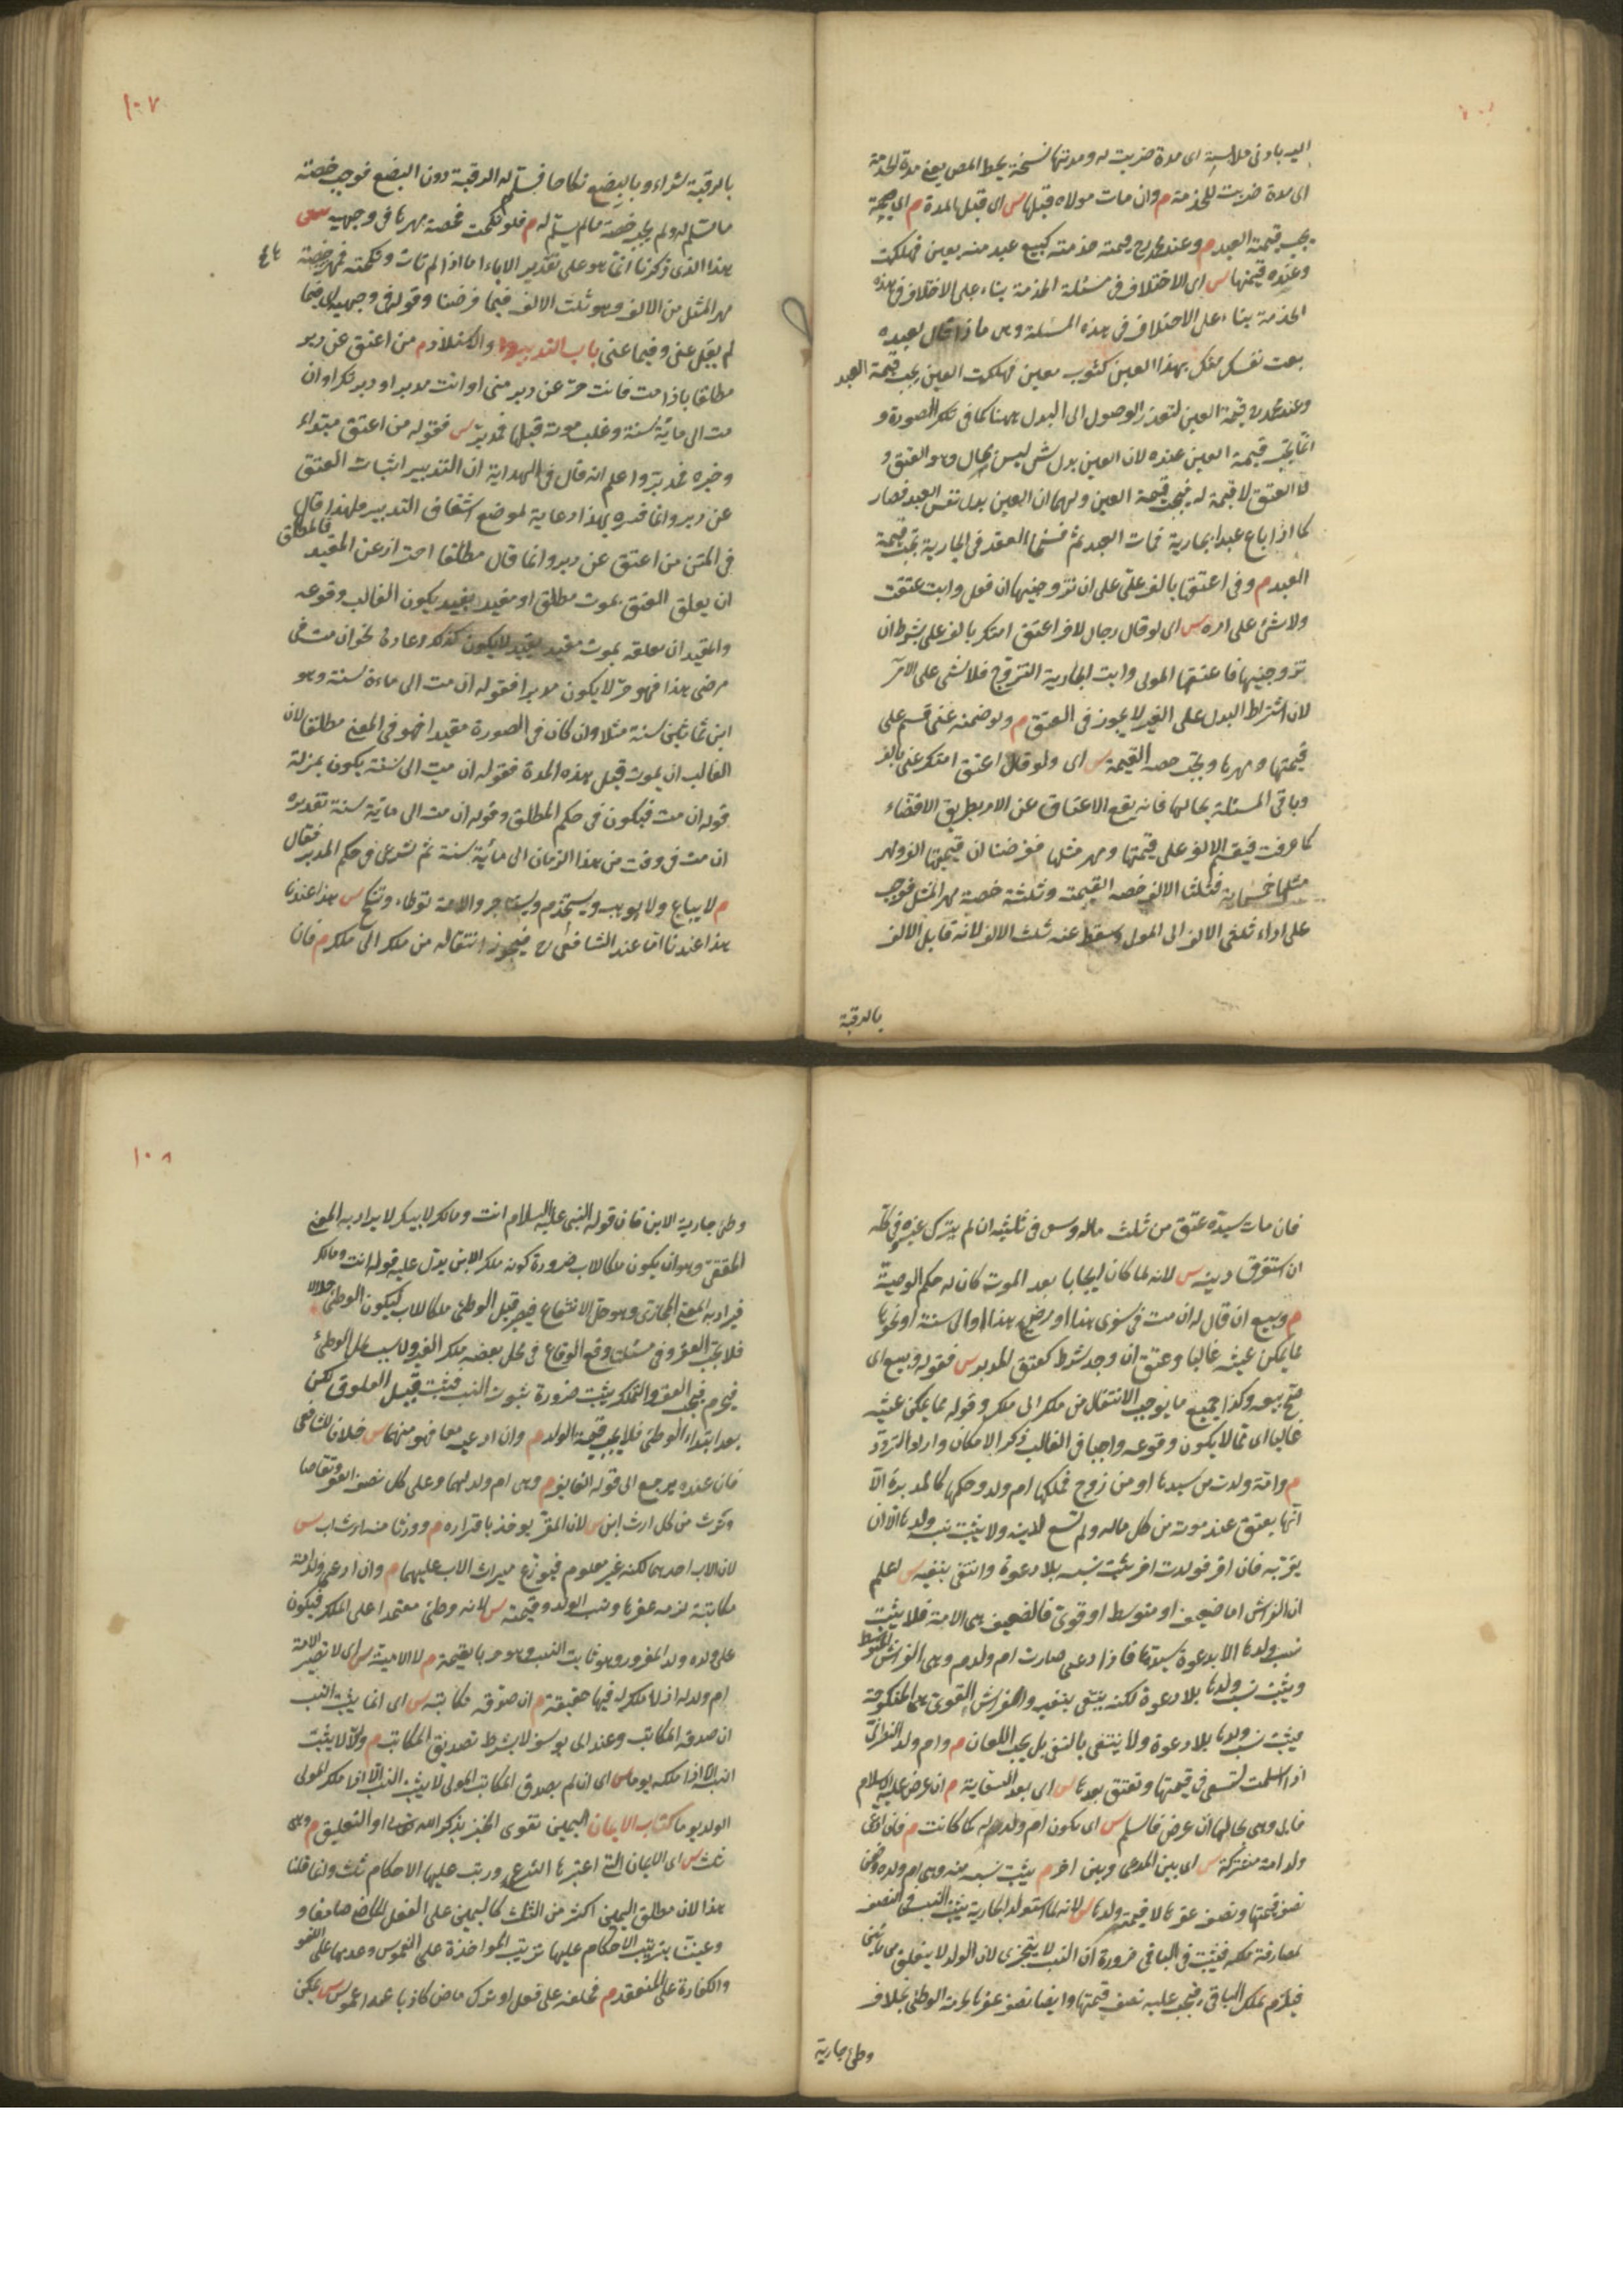 اليه بادنى ملابسة اى مدة ضربت له ومدتها نسخة بخط المص يعنى مدة الخدمة
اى مدة ضربت للخدمة م وان مات مولاه قبلها س اى قبل المدة م
يجب قيمة العبد م وعند محمد رح قيمة خدمته كبيع عبد منه بعين فهلكت
وعنده قيمتها س اى الاختلاف فى مسئلة الخدمة بناء على الاختلاف فى هذه
الخدمة بناء على الاختلاف فى هذه المسئلة وهى ما اذا قال لعبده
بعت نفسك منك بهذا العين كثوب معين فهلكت العين يجب قيمة العبد
وعند محمد رح قيمة العين لتعذر الوصول الى البدل ههنا كما فى تلك الصورة و
انما يجب قيمة العين عنده لان العين بدل شئ ليس بمال وهو العتق و
لان العتق لا قيمة له فيجب قيمة العين ولهما ان العين بدل نفس العبد فصار
كما اذا باع عبدا بجارية فمات العبد ثم فسخا العقد فى الجارية يجب قيمة
العبد م وفى اعتقها بالف على على ان تزوجنيها ان فعل وابت عتقت
ولا شئ على امره س اى لو قال رجل لاخر اعتق امتك بالف على بشرط ان
تزوجنيها فاعتقها المولى وابت الجارية التزوج فلا شئ على الآمر
لان اشتراط البدل على الغير لا يجوز فى العتق م ولو ضمنه عنى قسم على
قيمتها ومهرها ويجب حصة القيمة س اى ولو قال اعتق امتك عنى بالف
وباقى المسئلة بحالها فانه يقع الاعتاق عن الامر بطريق الاقتضاء
كما عرفت فيقسم الالف على قيمتها ومهر مثلها فرضنا ان قيمتها الف ومهر
مثلها خمسمائة فثلثا الالف حصة القيمة وثلثه حصة مهر المثل فوجب
على اداء ثلثى الالف الى المولى وسقط عنه ثلث الالف لانه قابل الالف
بالرقبة
١٠٧
بالرقبة شراء وبالبضع نكاحا فسلم له الرقبة دون البضع فوجب حصة
ما سلم له ولم يجب حصة ما لم يسلم له م فلو نكحت فحصة مهرها فى وجهيه س
هذا الذى ذكرنا انما هو على تقدير الاباء اما اذا لم تاب ونكحته فمهرها حصة
مهر المثل من الالف وهو ثلث الالف فيما فرضنا وقوله فى وجهيه اى فيما
لم يقل عنى وفيما عنى باب التدبير والاستيلاد م من اعتق عن دبر
مطلقا باذا مت فانت حر عن دبر منى او انت مدبر او دبرتك او ان
مت الى مائة سنة وغلب موته قبلها فمدبر س فقوله من اعتق مبتداء
وخبره فمدبر واعلم انه قال فى الهداية ان التدبير اثبات العتق
عن دبر وانما فسره بهذا رعاية لموضع اشتقاق التدبير فلهذا قال
فى المتن من اعتق عن دبر وانما قال مطلقا احتراز عن المقيد فالمطلق
ان يعلق العتق بموت مطلق او مقيد بقيد يكون الغالب وقوعه
والمقيد ان يعلقه بموت مقيد بقيد لا يكون كذلك عادة نحو ان مت فى
مرضى هذا فهو حر لا يكون مدبرا فقوله ان مت الى مائة سنة وهو
ابن ثمانين سنة مثلا وان كان فى الصورة مقيدا فهو فى المعنى مطلق لان
الغالب ان يموت قبل هذه المدة فقوله ان مت الى سنة يكون بمنزلة
قوله ان مت فيكون فى حكم المطلق وقوله ان مت الى مائة سنة تقديره
ان مت فى وقت من هذا الزمان الى مائة سنة ثم شرع فى حكم المدبر فقال
م لا يباع ولا يوهب ويستخدم ويستاجر والامة توطاء وتنكح س هذا عندنا
هذا عندنا اما عند الشافعى رح فيجوز انتقاله من ملك الى ملك م فان
فان مات سيده عتق من ثلث ماله وسعى فى ثلثيه ان لم يترك غيره وفى كله
ان استغرق دينه س لانه لما كان ايجابا بعد الموت كان له حكم الوصية
م وبيع ان قال له ان مت فى سفرى هذا او مرضى هذا او الى سنة او نحوها
مما يمكن عيشه غالبا وعتق ان وجد شرط كعتق المدبر س فقوله وبيع اى
صح بيعه وكذا جميع ما يوجب الانتقال من ملك الى ملك وقوله مما يمكن عيشه
غالبا اى مما لا يكون وقوعه واجبا فى الغالب ذكر الامكان واراد التردد
م وامة ولدت من سيدها او من زوج فملكها ام ولد وحكمها كالمدبرة الا
انها يعتق عند موته من كل ماله ولم تسع لدينه ولا يثبت نسب ولدها الا ان
يقر به فان اقر فولدت اخر يثبت نسبه بلا دعوة وانتفى بنفيه س اعلم
ان الفراش اما ضعيف او متوسط او قوى فالضعيف هى الامة فلا يثبت
نسب ولدها الا بدعوة سيدها فاذا ادعى صارت ام ولد م وهى الفراش المتوسط
ويثبت نسب ولدها بلا دعوة لكنه ينتفى بنفيه والفراش القوى هى المنكوحة
يثبت نسب ولدها بلا دعوة ولا ينتفى بالنفى بل يجب اللعان م وام ولد النصرانى
اذا اسلمت تسعى فى قيمتها وتعتق بعدها س اى بعد السعاية م ان عرض عليه الاسلام
فابى وهى بحالها ان عرض فاسلم س اى يكون ام ولد له كما كانت م فان ادعى
ولد امة مشتركة س اى بين المدعى وبين اخر م يثبت نسبه منه وهى ام ولده وضمن
نصف قيمتها ونصف عقرها لا قيمة ولدها س لانه لما استولد الجارية يثبت النسب فى النصف
لمصادفة ملكه فيثبت فى الباقى ضرورة ان النسب لا يتجزى لان الولد لا يتعلق من مائين
فيلزم تملك الباقى فيجب عليه نصف قيمتها وايضا نصف عقرها لحرمة الوطئ بخلاف
وطئ جارية
١٠٨
وطئ جارية الابن فان قوله النبى عليه السلام انت ومالك لابيك لا يراد به المعنى
الحقيقى وهو ان يكون ملكا للاب ضرورة كونه ملك الابن يدل عليه قوله انت ومالك
فيراد به المعنى المجازى وهو حل الانتفاع فيصير قبل الوطئ ملكا للاب ليكون الوطئ حلالا
فلا يجب العقر وفى مسئلتنا وقع الوقاع فى محل بعضه ملك الغير ولا سبب لحل الوطئ
فيحرم فيجب العقر والتملك يثبت ضرورة ثبوت النسب فيثبت قبيل العلوق لكن
بعد ابتداء الوطئ فلا يجب قيمة الولد م وان ادعياه معا فهو منهما س خلافا للشافعى
فان عنده يرجع الى قوله القايف م وهى ام ولد لهما وعلى كل نصف العقر وتقاصا
ويرث من كل ارث ابن س لان المقر يوخذ باقراره م وورثا منه ارث اب س
لان الاب احدهما لكنه غير معلوم فيوزع ميراث الاب عليهما م وان ادعى ولد امة
مكاتبة لزمه عقرها ونسب الولد وقيمته س لانه وطئ معتمدا على الملك فيكون
على ولده ولد المغرور وهو ثابت النسب وهو حر بالقيمة م لا الامية س اى لا تصير الامة
ام ولد له اذ لا ملك له فيها حقيقة م ان صدقه مكاتبه س اى انما يثبت النسب
ان صدقه المكاتب وعند ابى يوسف لا يشترط تصديق المكاتب م والا لا يثبت
النسب الا اذا ملكه يوما س اى ان لم يصدق المكاتب المولى لا يثبت النسب الا اذا ملك المولى
الولد يوما كتاب الايمان اليمين تقوى الخبز بذكر الله تعالى او التعليق م وهى
ثلث س اى الايمان التى اعتبرها الشرع ورتب عليها الاحكام ثلث وانما قلنا
هذا لان مطلق اليمين اكثر من الثلث كاليمين على الفعل الماضى صادقا و
وعنيت بترتيب الاحكام عليها ترتيب المواخذة على الغموس وعدمها على اللغو
والكفارة على المنعقد م فحلفه على فعل او ترك ماض كاذبا عمدا غموس س يمكن